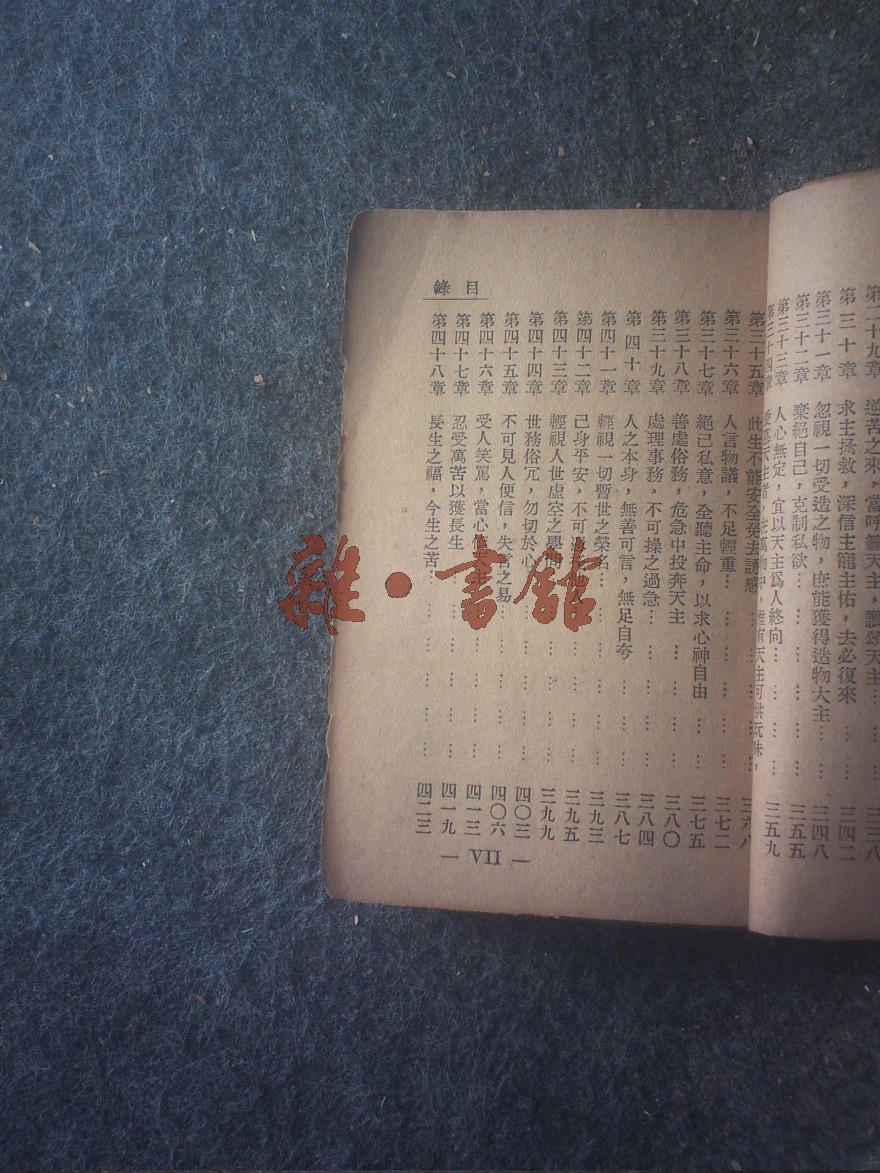 第二十九章 逆苦之來，當呼籲天主，讚頌天主…… 三三八
第三十章 求主拯救，深信主寵主佑，去必復來 三四二
第三十一章 忽視一切受造之物，庶能獲得造物大主…… 三四八
第三十二章 棄絕自己，克制私欲…… 三五五
第三十三章 人心無定，宜以天主爲人終向…… 三五九
第三十四章 愛慕天主者，在萬物中，惟有天主可供玩味，
目錄
第三十五章 此生不能安全免去誘惑…… 三六八
第三十六章 人言物議，不足輕重…… 三七二
第三十七章 絕己私意，全聽主命，以求心神自由…… 三七五
第三十八章 善處俗務，危急中投奔天主…… 三八〇
第三十九章 處理事務，不可操之過急…… 三八四
第四十章 人之本身，無善可言，無足自夸…… 三八七
第四十一章 輕視一切暫世之榮名…… 三九三
第四十二章 己身平安，不可他人…… 三九五
第四十三章 輕視人世虛空之學問…… 三九九
第四十四章 世務俗冗，勿切於心…… 四〇三
第四十五章 不可見人便信，失言之易…… 四〇六
第四十六章 受人笑罵，當心天主…… 四一三
第四十七章 忍受萬苦以獲長生…… 四一九
第四十八章 長生之福，今生之苦…… 四二三
— VII —
雜·書館